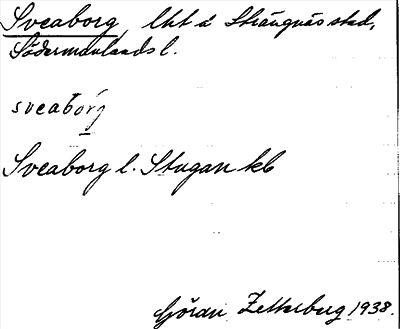 Sveaborg, lht i Strängnäs stad,
Södermanlands l.
sveabórg
Sveaborg l. Stugan kb
Göran Zetterberg 1938.